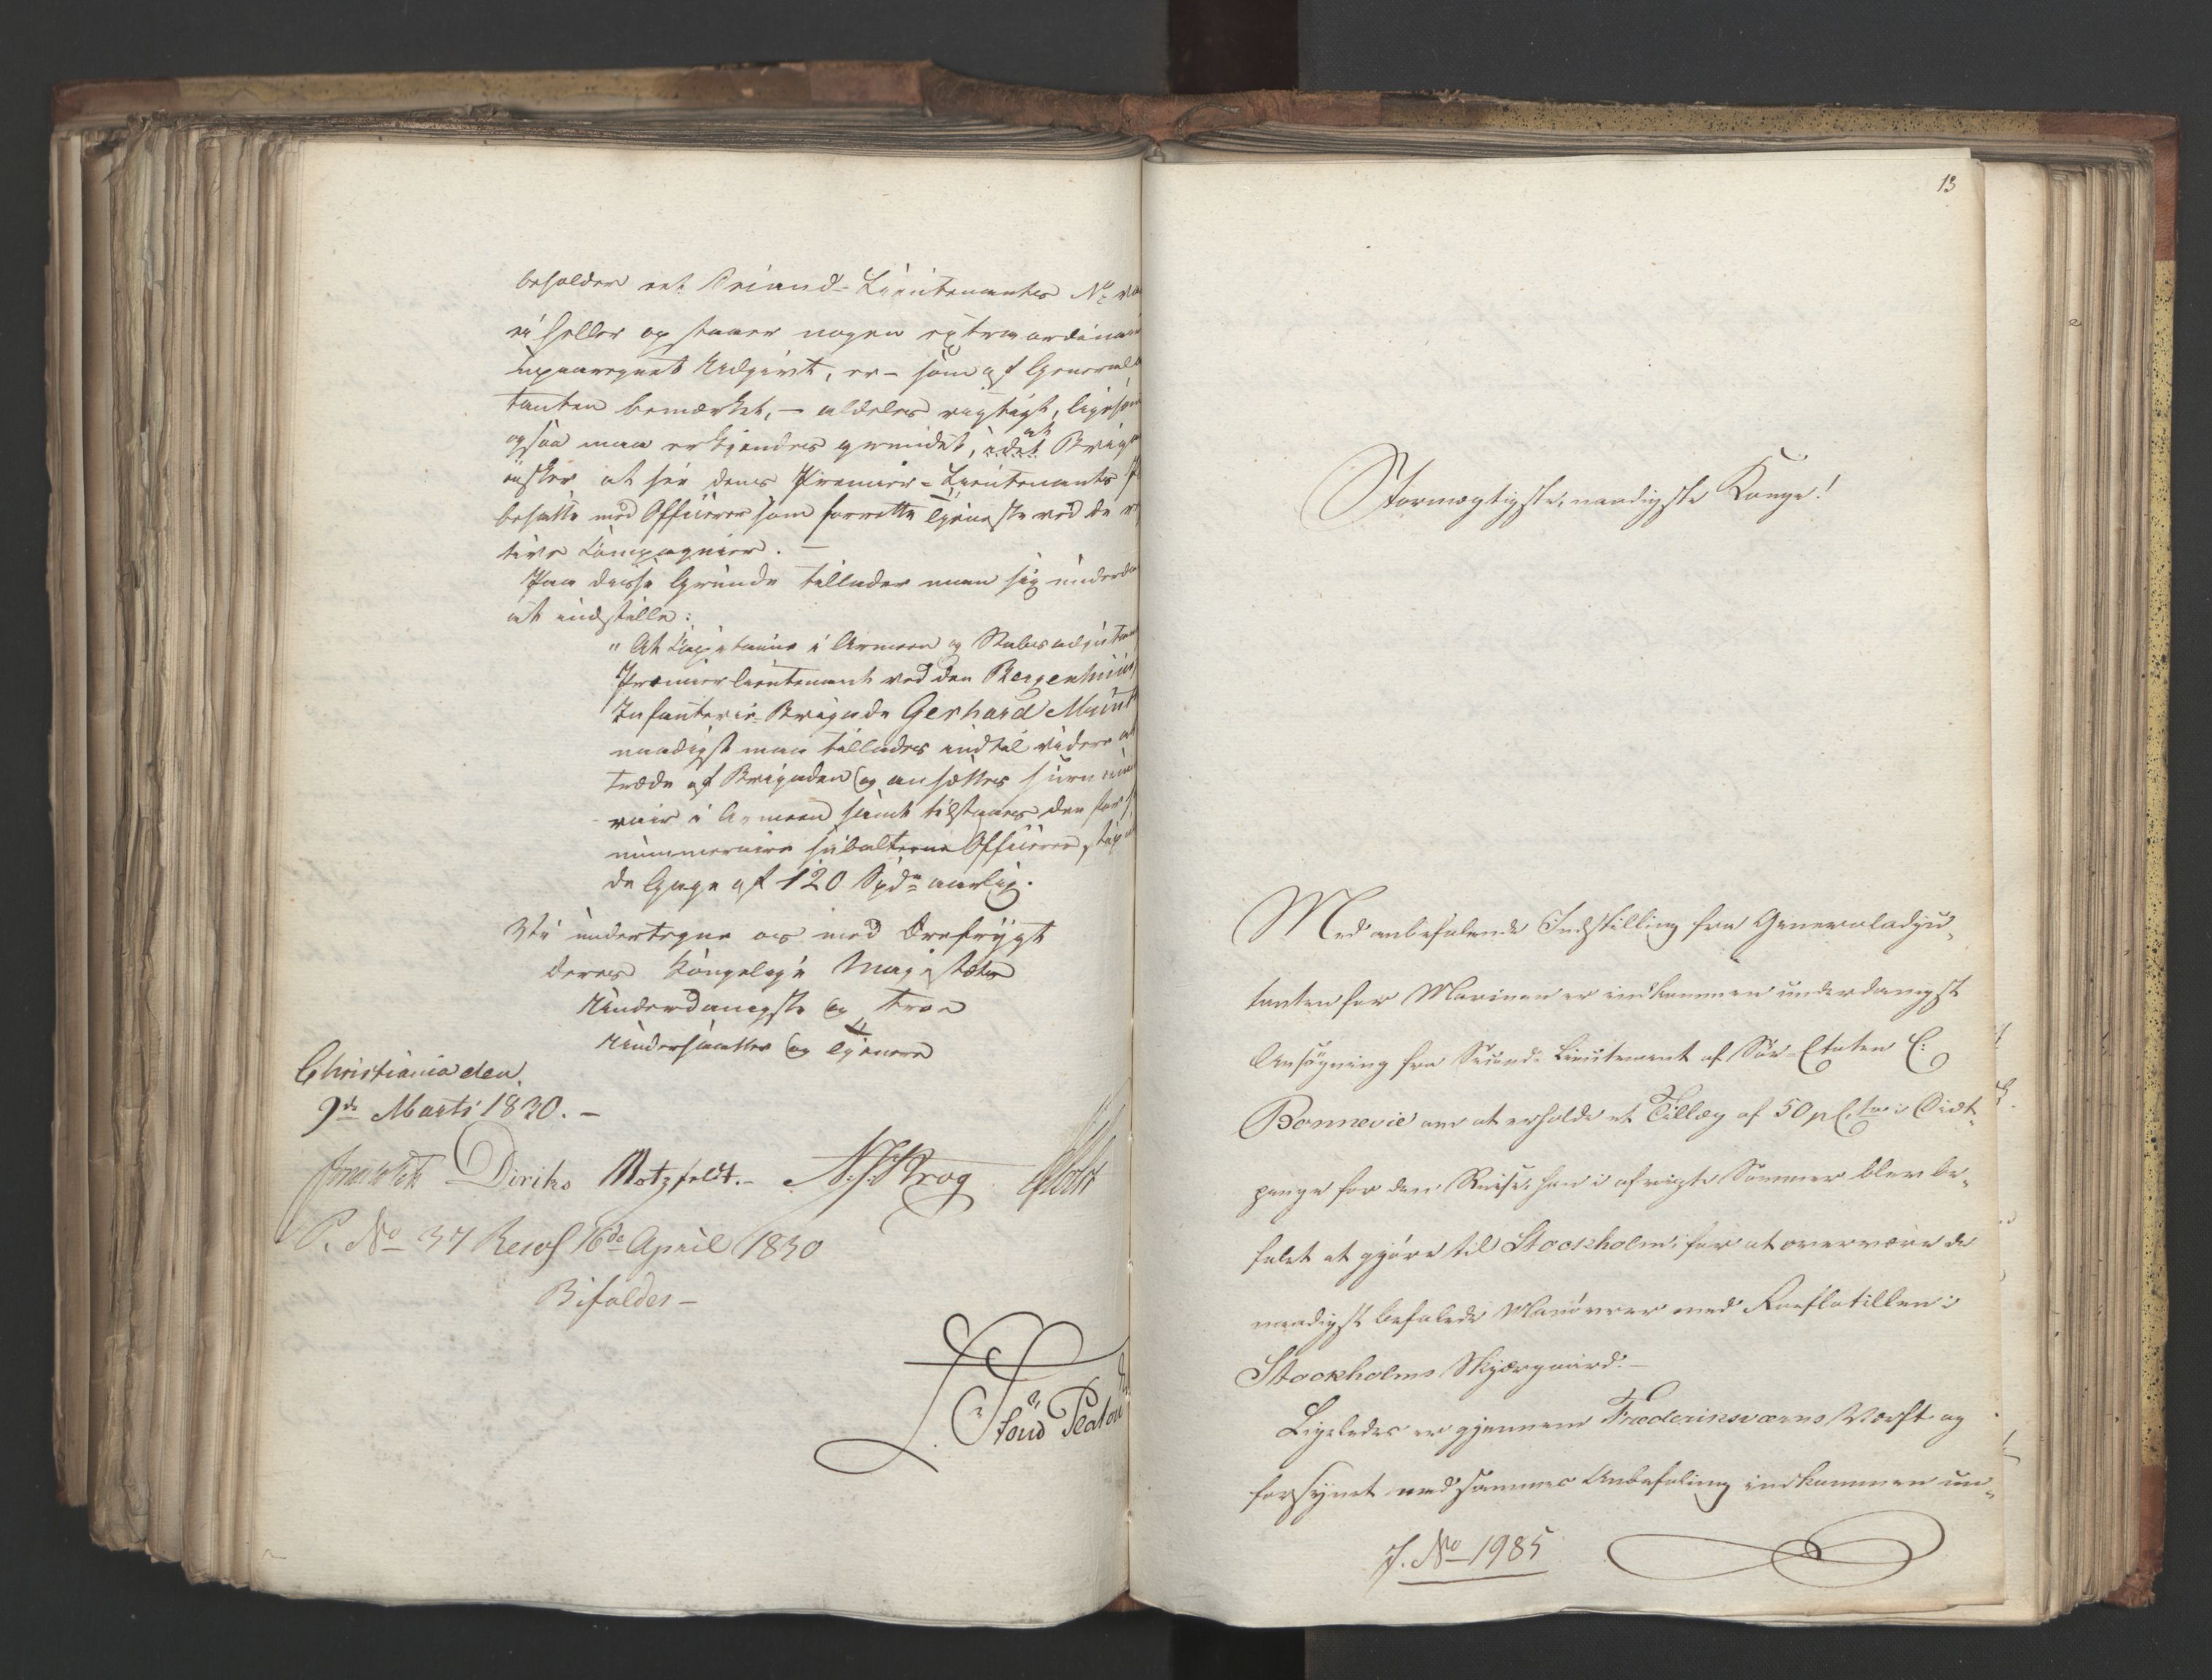 beholder et Second-Lieutenants No
ei heller opstaaer nogen extraordinair
upaaregnet Udgivt, er - som af General
tanten bemærket, - aldeles rigtigt, ligesom
ogsaa maa erkjendes grundet, at Brig
ønsker at see dens Premier-Lieutenants
besatte med Officierer som forrette Tjeneste ved de
tive Compagnier. -
Paa disse Grunde tillader man sig underd
at indstille:
"At Capitaine i Armeen og Stabsadjutant
Premierlieutenant ved den Bergenhuus
Infanterie-Brigade Gerhard Munt
naadigst maa tillades indtil videre at
træde af Brigaden og ansættes surnum
rair i Armeen samt tilstaaes den for
nummeraire subalterne Officierer
de Gage af 120 Spd aarlig.
Vi undertegne os med Ærefrygt
Deres Kongelige Majestæts
Underdanigste og troe
Undersaatter og Tjenere
Christiania den
9de Marti 1830. -
Diriks Motzfeldt.- Krog Holst
P. No 37 Resol 16de April 1830
Bifaldes -
13
Stormægtigste, naadigste Konge!
Med anbefalende Indstilling fra Generaladju-
tanten for Marinen er indkommen underdanigst
Ansøgning fra Second-Lieutenant af Søe-Etaten C:
Bonnevie om at erholde et Tillæg af 50 pCto i Diæt-
penge for den Reise, han i afvigte Sommer blev be-
falet at gjøre til Stockholm, for at overvære de
naadigst befalede Manøvrer med Roeflotillen i
Stockholms Skjærgaard. -
Ligeledes er gjennem Frederiksværns Værft og
forsynet med sammes Anbefaling indkommen un-
J. No 1985